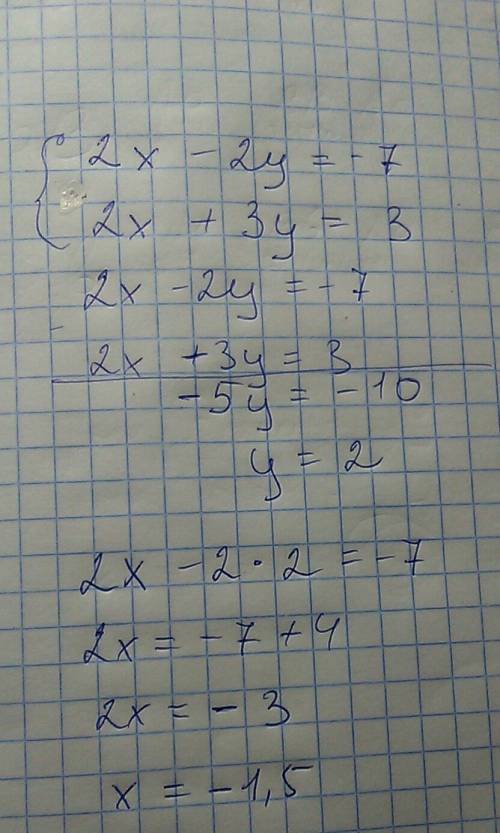 { 2x - 2y = -7
2x + 3y = 3
2x - 2y = -7
-
2x + 3y = 3
-5y = -10
y = 2
2x - 2 · 2 = -7
2x = -7 + 4
2x = - 3
x = -1,5